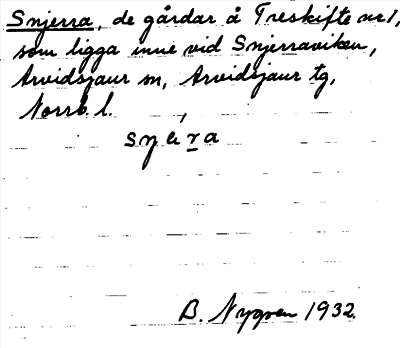 Snjerra, de gårdar å Treskifte nr 1,
som ligga inne vid Snjerraviken,
Arvidsjaur sn, Arvidsjaur tg,
Norrb. l.
B. Nygren 1932.